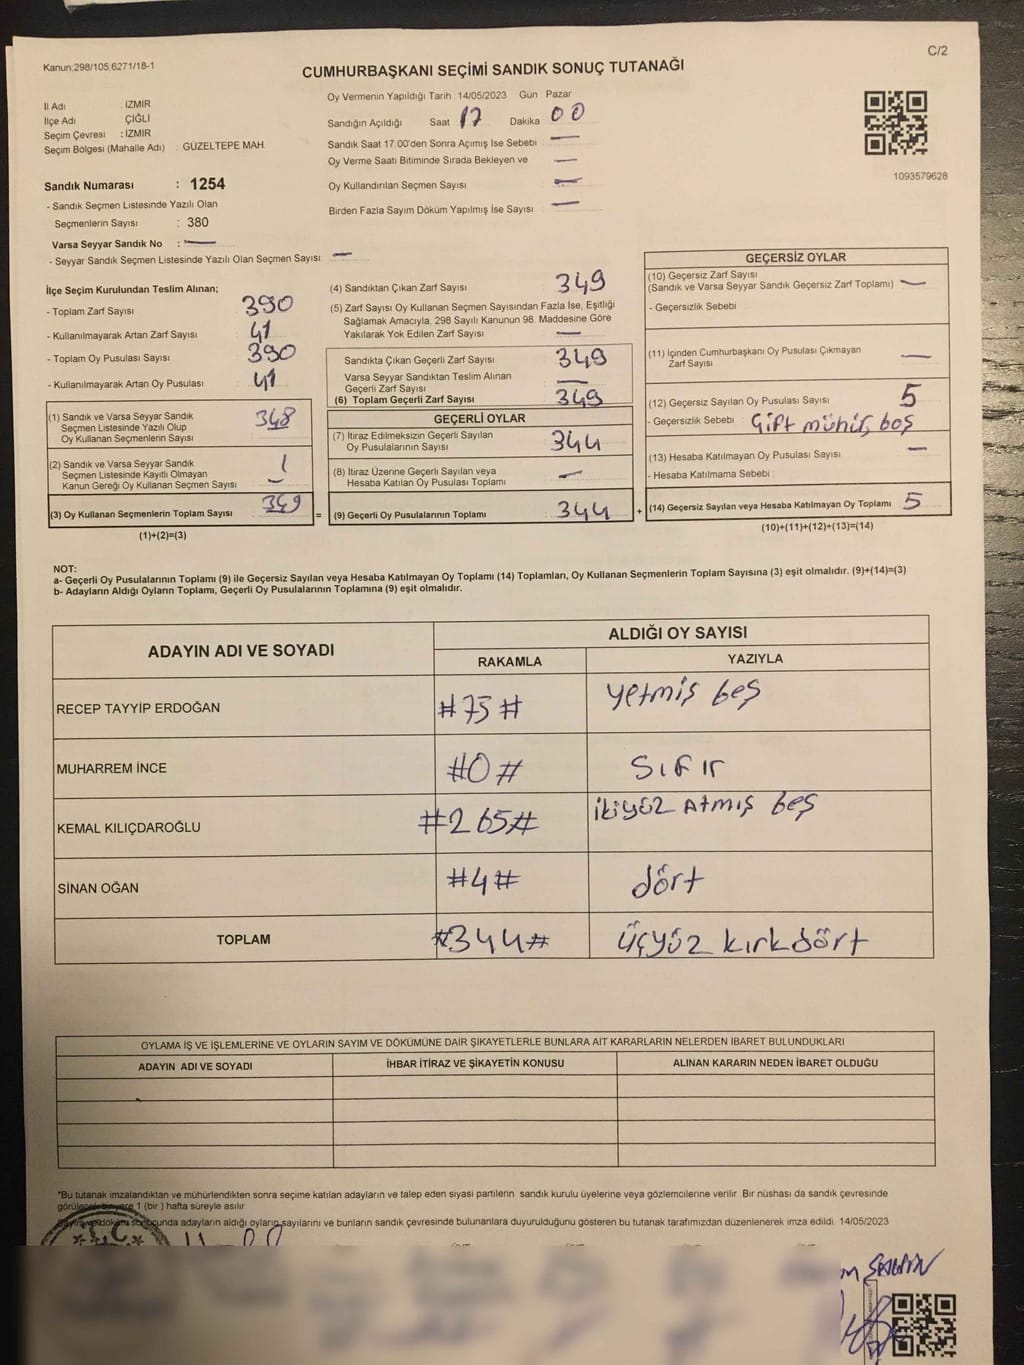 C/2
Kanun:298/105,6271/18-1
CUMHURBAŞKANI SEÇİMİ SANDIK SONUÇ TUTANAĞI
İl Adı : İZMİR
İlçe Adı : ÇİĞLİ
Seçim Çevresi : İZMİR
Seçim Bölgesi (Mahalle Adı) : GÜZELTEPE MAH.
Sandık Numarası : 1254
- Sandık Seçmen Listesinde Yazılı Olan
Seçmenlerin Sayısı : 380
Varsa Seyyar Sandık No : —
- Seyyar Sandık Seçmen Listesinde Yazılı Olan Seçmen Sayısı —
Oy Vermenin Yapıldığı Tarih : 14/05/2023 Gün Pazar
Sandığın Açıldığı Saat 17 Dakika 00
Sandık Saat 17:00'den Sonra Açımış İse Sebebi —
Oy Verme Saati Bitiminde Sırada Bekleyen ve —
Oy Kullandırılan Seçmen Sayısı —
Birden Fazla Sayım Döküm Yapılmış İse Sayısı —
1093579628
İlçe Seçim Kurulundan Teslim Alınan;
- Toplam Zarf Sayısı 390
- Kullanılmayarak Artan Zarf Sayısı 41
- Toplam Oy Pusulası Sayısı 390
- Kullanılmayarak Artan Oy Pusulası 41
(1) Sandık ve Varsa Seyyar Sandık
Seçmen Listesinde Yazılı Olup
Oy Kullanan Seçmenlerin Sayısı 348
(2) Sandık ve Varsa Seyyar Sandık
Seçmen Listesinde Kayıtlı Olmayan
Kanun Gereği Oy Kullanan Seçmen Sayısı 1
(3) Oy Kullanan Seçmenlerin Toplam Sayısı 349 =
(1)+(2)=(3)
(4) Sandıktan Çıkan Zarf Sayısı 349
(5) Zarf Sayısı Oy Kullanan Seçmen Sayısından Fazla İse, Eşitliği
Sağlamak Amacıyla, 298 Sayılı Kanunun 98. Maddesine Göre
Yakılarak Yok Edilen Zarf Sayısı —
Sandıkta Çıkan Geçerli Zarf Sayısı 349
Varsa Seyyar Sandıktan Teslim Alınan
Geçerli Zarf Sayısı —
(6) Toplam Geçerli Zarf Sayısı 349
GEÇERLİ OYLAR
(7) İtiraz Edilmeksizin Geçerli Sayılan
Oy Pusulalarının Sayısı 344
(8) İtiraz Üzerine Geçerli Sayılan veya
Hesaba Katılan Oy Pusulası Toplamı —
(9) Geçerli Oy Pusulalarının Toplamı 344 +
GEÇERSİZ OYLAR
(10) Geçersiz Zarf Sayısı
(Sandık ve Varsa Seyyar Sandık Geçersiz Zarf Toplamı) —
- Geçersizlik Sebebi
(11) İçinden Cumhurbaşkanı Oy Pusulası Çıkmayan
Zarf Sayısı —
(12) Geçersiz Sayılan Oy Pusulası Sayısı 5
- Geçersizlik Sebebi Çift mühür, boş
(13) Hesaba Katılmayan Oy Pusulası Sayısı —
- Hesaba Katılmama Sebebi
(14) Geçersiz Sayılan veya Hesaba Katılmayan Oy Toplamı 5
(10)+(11)+(12)+(13)=(14)
NOT:
a- Geçerli Oy Pusulalarının Toplamı (9) ile Geçersiz Sayılan veya Hesaba Katılmayan Oy Toplamı (14) Toplamları, Oy Kullanan Seçmenlerin Toplam Sayısına (3) eşit olmalıdır. (9)+(14)=(3)
b- Adayların Aldığı Oyların Toplamı, Geçerli Oy Pusulalarının Toplamına (9) eşit olmalıdır.
ADAYIN ADI VE SOYADI ALDIĞI OY SAYISI
RAKAMLA YAZIYLA
RECEP TAYYİP ERDOĞAN #75# yetmiş beş
MUHARREM İNCE #0# sıfır
KEMAL KILIÇDAROĞLU #265# ikiyüz atmış beş
SİNAN OĞAN #4# dört
TOPLAM #344# üçyüz kırkdört
OYLAMA İŞ VE İŞLEMLERİNE VE OYLARIN SAYIM VE DÖKÜMÜNE DAİR ŞİKAYETLERLE BUNLARA AİT KARARLARIN NELERDEN İBARET BULUNDUKLARI
ADAYIN ADI VE SOYADI İHBAR İTİRAZ VE ŞİKAYETİN KONUSU ALINAN KARARIN NEDEN İBARET OLDUĞU
*Bu tutanak imzalandıktan ve mühürlendikten sonra seçime katılan adayların ve talep eden siyasi partilerin sandık kurulu üyelerine veya gözlemcilerine verilir. Bir nüshası da sandık çevresinde
görülecek bir yere 1 (bir) hafta süreyle asılır.
Sayım ve döküm sonucunda adayların aldığı oyların sayılarını ve bunların sandık çevresinde bulunanlara duyurulduğunu gösteren bu tutanak tarafımızdan düzenlenerek imza edildi. 14/05/2023
T.C.